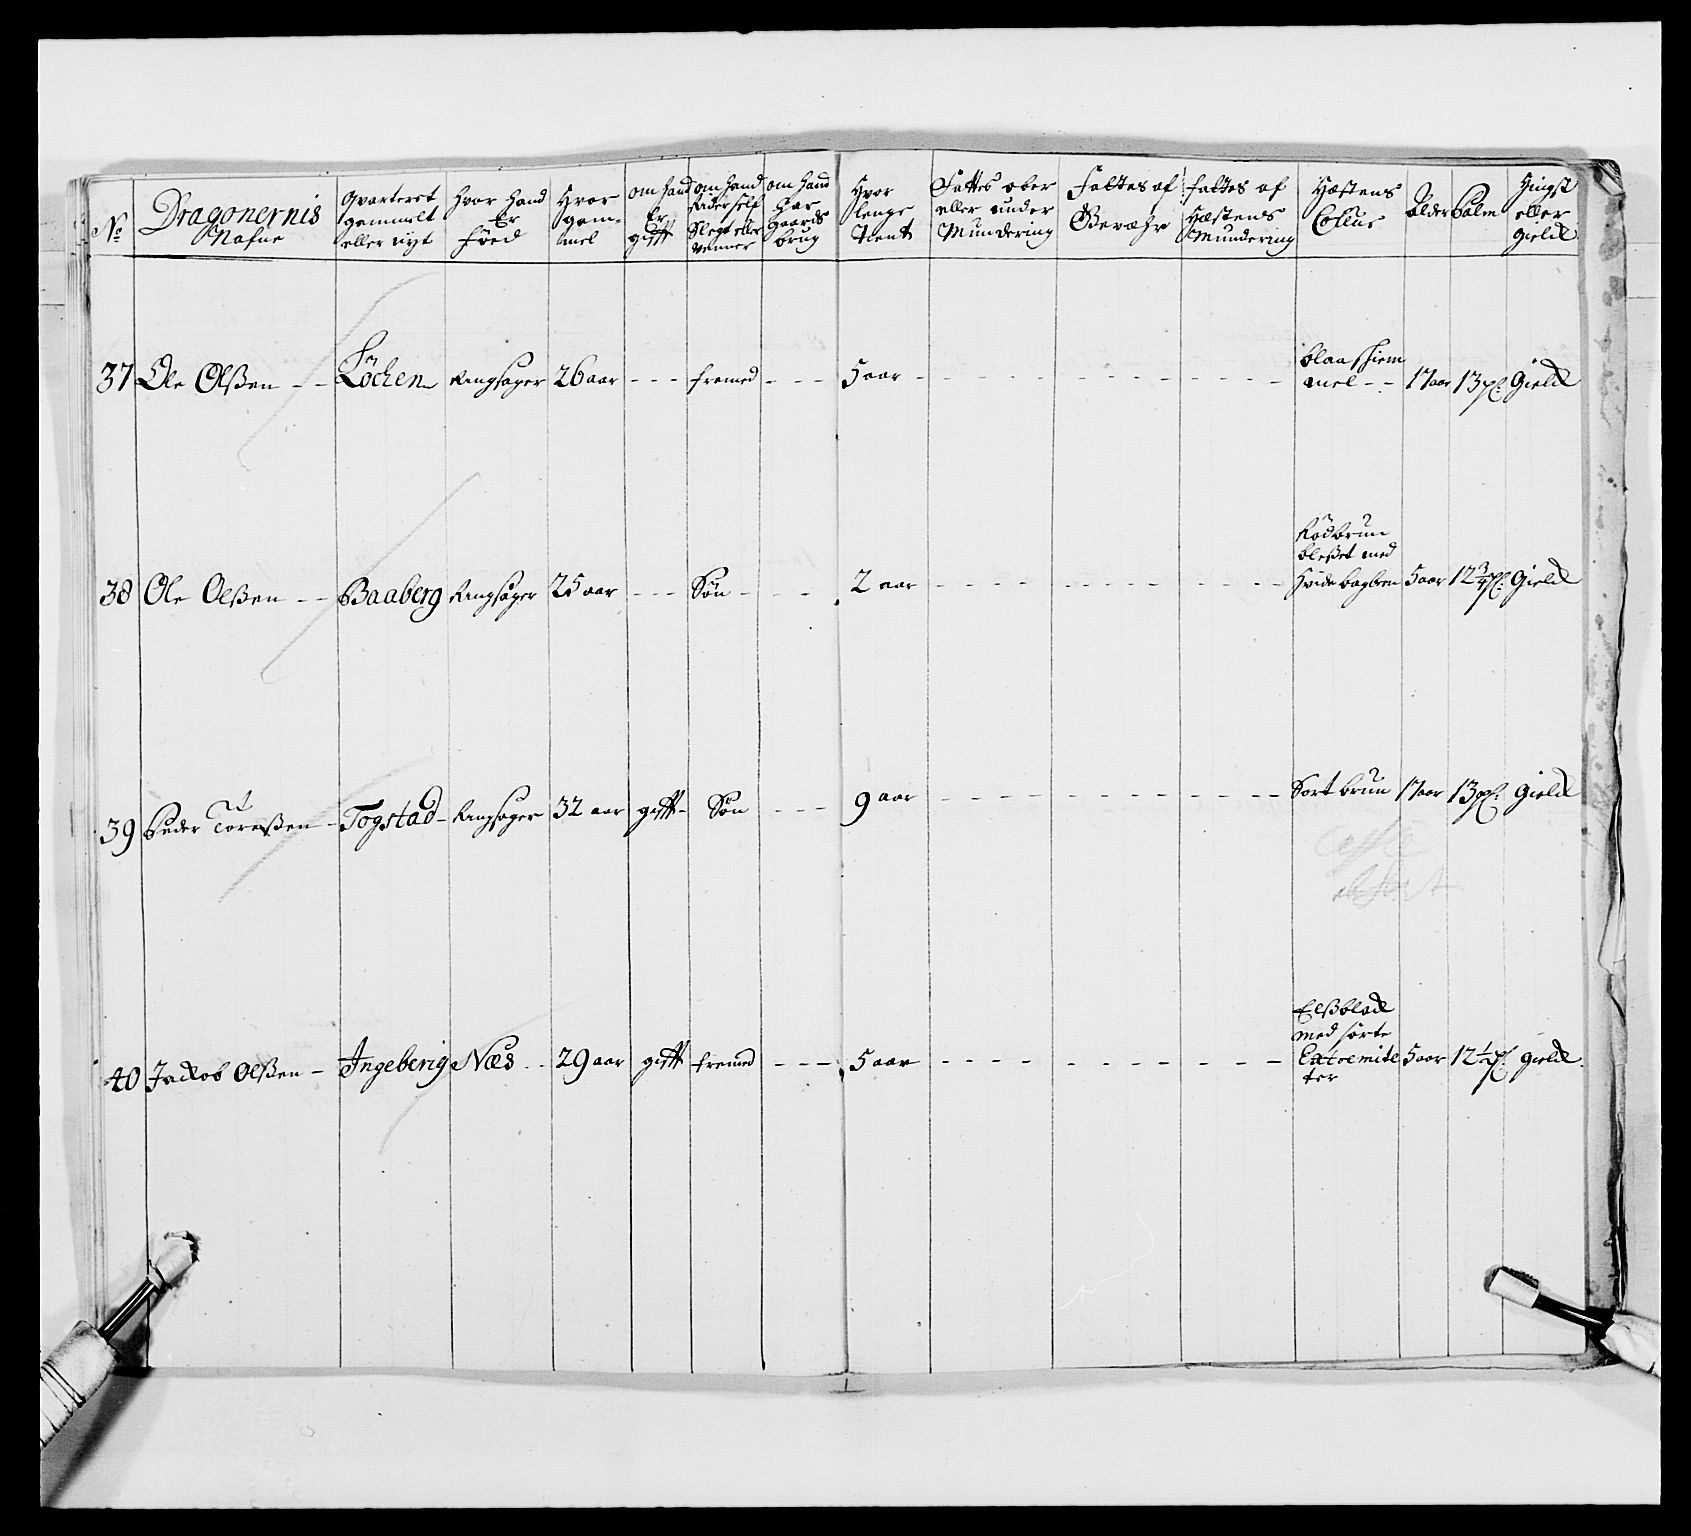 No
Dragonernis Nafne
Qvarteret gammelt eller nyt
Hvor hand Er Föed
Hvor gammel
om hand Er gifft
om hand Slegt eller Venner
om hand Har gaards brug
Hvor lenge tient
Fattes ober eller under Mundering
Fattes af Gevæhr
fattes af Hæstens Mundering
Hæstens Collur
Alder
Palm
Hingst eller gield
37 Ole Olßen -- Löchen Ringsager 26 aar --- fremed --- 5 aar blaa skiem mel -- 17 aar 13 pl: Gield
38 Ole Olßen -- Baaberg Ringsager 25 aar --- Sön --- 2 aar Rödbrun bleßet med hvide bagben 5 aar 12 3/4 pl: Gield
39 Peder Toreßen - Togstad - Ringsager 32 aar gifft - Sön --- 9 aar Sort brun 17 aar 13 pl: gield
40 Jackob Olßen - Ingeberig Næs -- 29 aar gifft fremed --- 5 aar Elßblack med sorte Extremite ter 5 aar 12 1/2 pl: gield